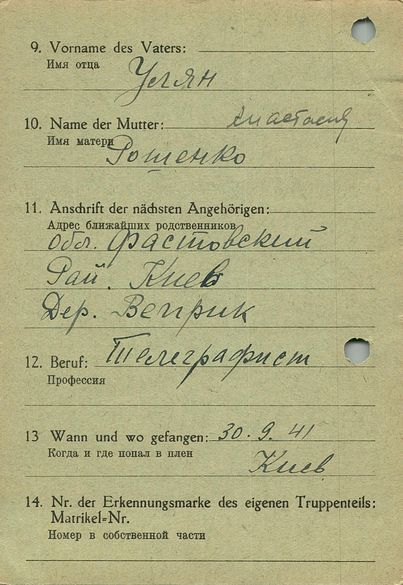 9. Vorname des Vaters:
Имя отца
Улян
10. Name der Mutter: Анастасия
Имя матери
Рошенко
11. Anschrift der nächsten Angehörigen:
Адрес ближайших родственников
обл. Фастовский
Рай. Киев
Дер. Веприк
12. Beruf: Телеграфист
Профессия
13 Wann und wo gefangen: 30. 9. 41
Когда и где попал в плен
Киев
14. Nr. der Erkennungsmarke des eigenen Truppenteils:
Matrikel=Nr.
Номер в собственной части